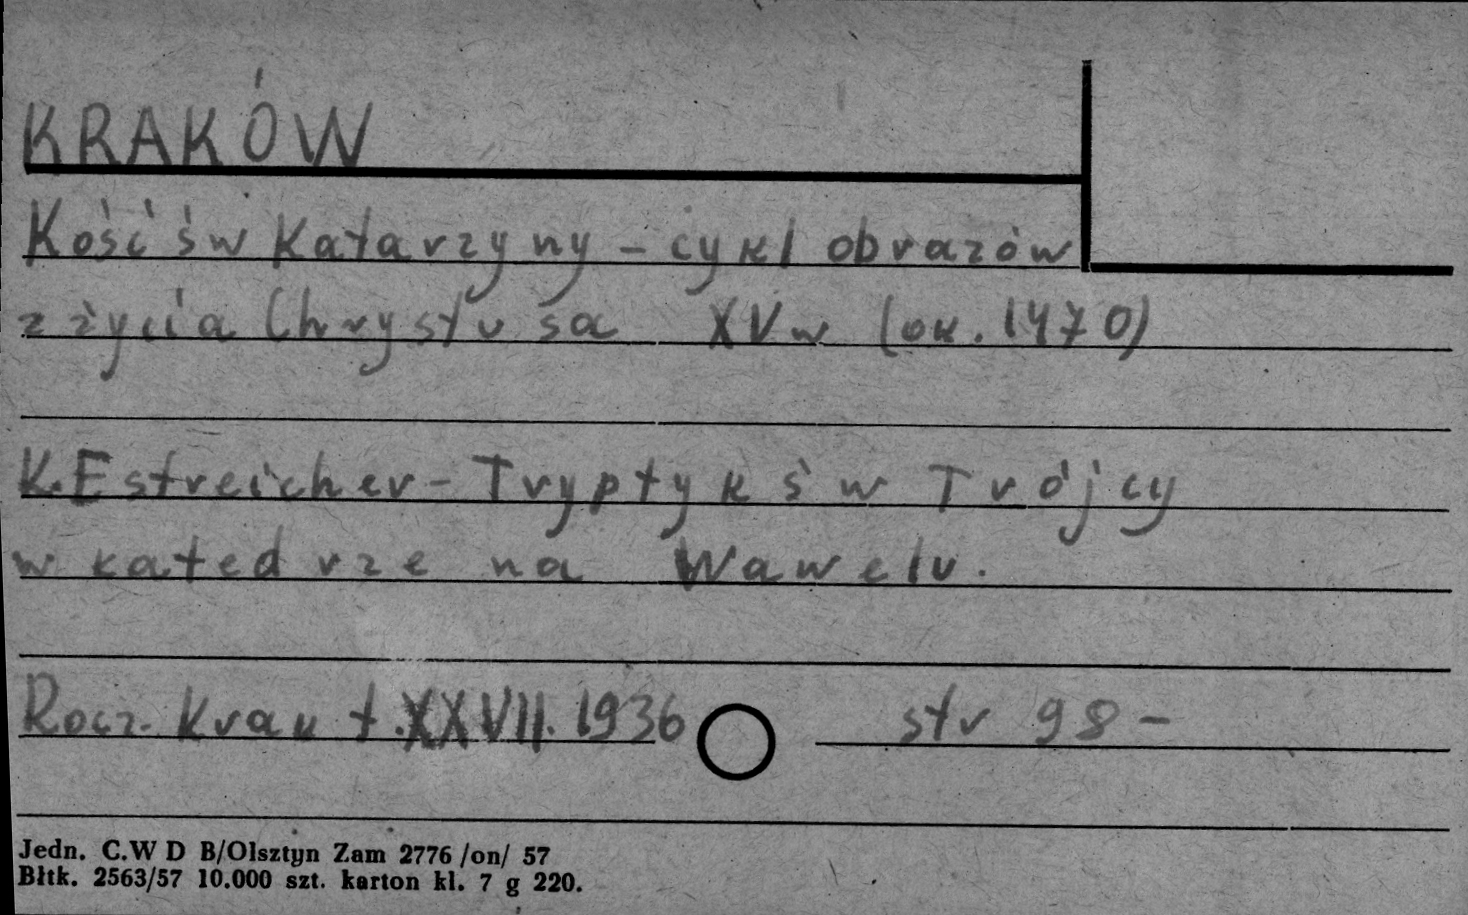 KRAKÓW
Kość św Katarzyny – cykl obrazów
z życia Chrystusa XV w (ok. 1470)
K. Estreicher – Tryptyk św Trójcy
w katedrze na Wawelu.
Rocz. Krak t. XXVII. 1936 str 98 –
Jedn. C.W D B/Olsztyn Zam 2776 /on/ 57
Błtk. 2563/57 10.000 szt. karton kl. 7 g 220.